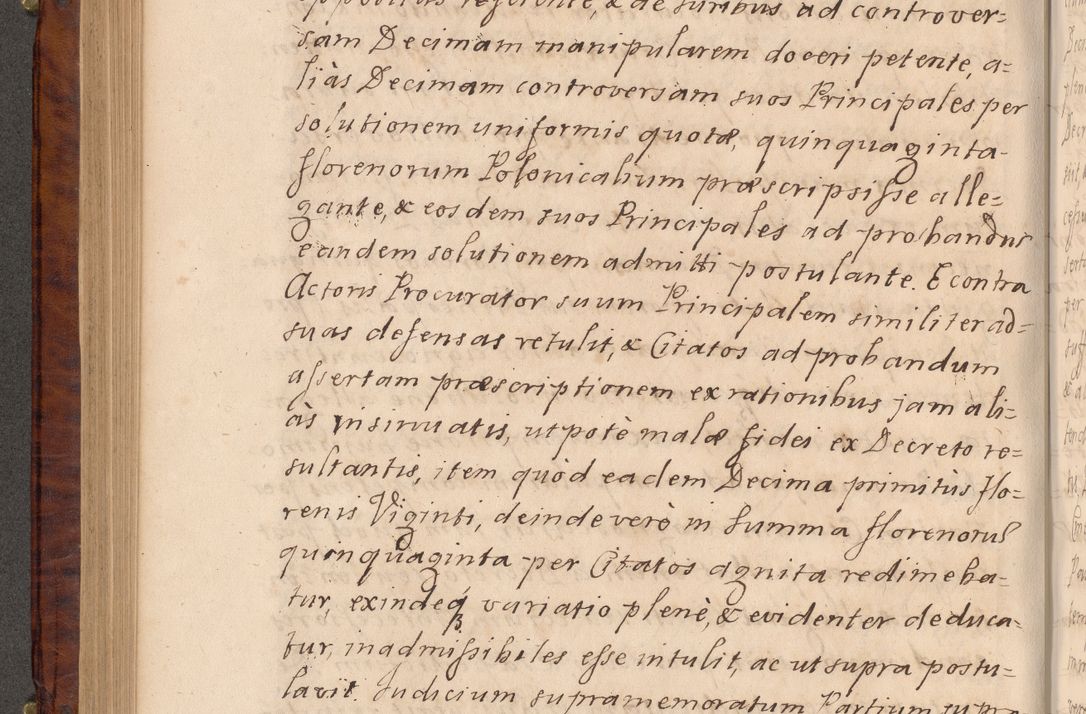 oppositus referente, & de juribus ad controver=
sam Decimam manipularem doceri petente, a=
liàs Decimam controversam suos Principales per
solutionem uniformis quotæ, quinquaginta
florenorum Polonicalium præscripsisse alle=
gante, & eosdem suos Principales ad probandus
eandem solutionem admitti postulante. E contra
Actoris Procurator suum Principalem similiter ad=
suas defensas retulit, & Citatos ad probandum
assertam præscriptionem ex rationibus jam ali=
às insinuatis, utpotè malæ fidei ex Decreto re=
sultantis, item quòd eadem Decima primitùs flo=
renis Viginti, deinde verò in summa florenorum
quinquaginta per Citatos agnita redimeba=
tur, exindeq; variatio plenè, & evidenter deduca=
tur, inadmissibiles esse intulit, ac ut supra postu=
lavit. Judicium supramemoratum Partium supra